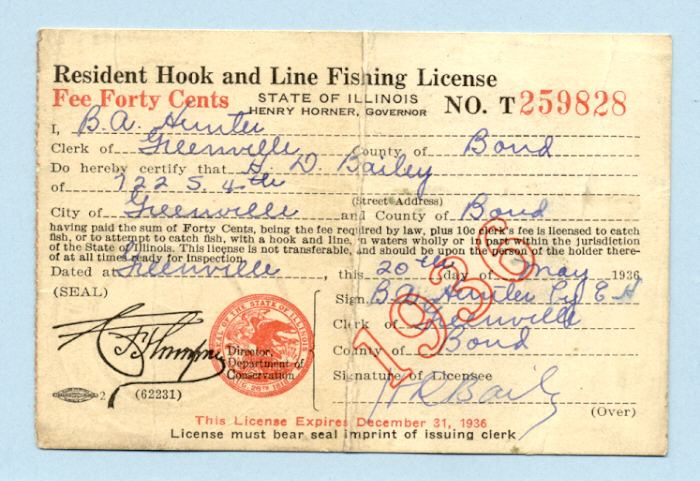 Resident Hook and Line Fishing License
Fee Forty Cents STATE OF ILLINOIS NO. T259828
HENRY HORNER, GOVERNOR
I, B. A. Hunter
Clerk of Greenville County of Bond
Do hereby certify that D. Bailey
of 722 S. 4th
(Street Address)
City of Greenville and County of Bond
having paid the sum of Forty Cents, being the fee required by law, plus 10c clerk's fee is licensed to catch
fish, or to attempt to catch fish, with a hook and line, in waters wholly or in part within the jurisdiction
of the State of Illinois. This license is not transferable, and should be upon the person of the holder there-
of at all times ready for inspection.
Dated at Greenville, this 20th day of May 1936
(SEAL)
Sign B. A. Hunter
Clerk of Greenville
County of Bond
1936
Director,
Department of
Conservation
SEAL OF THE STATE OF ILLINOIS
AUG. 26TH 1818
Signature of Licensee
Baily
2 (62231)
(Over)
This License Expires December 31, 1936
License must bear seal imprint of issuing clerk